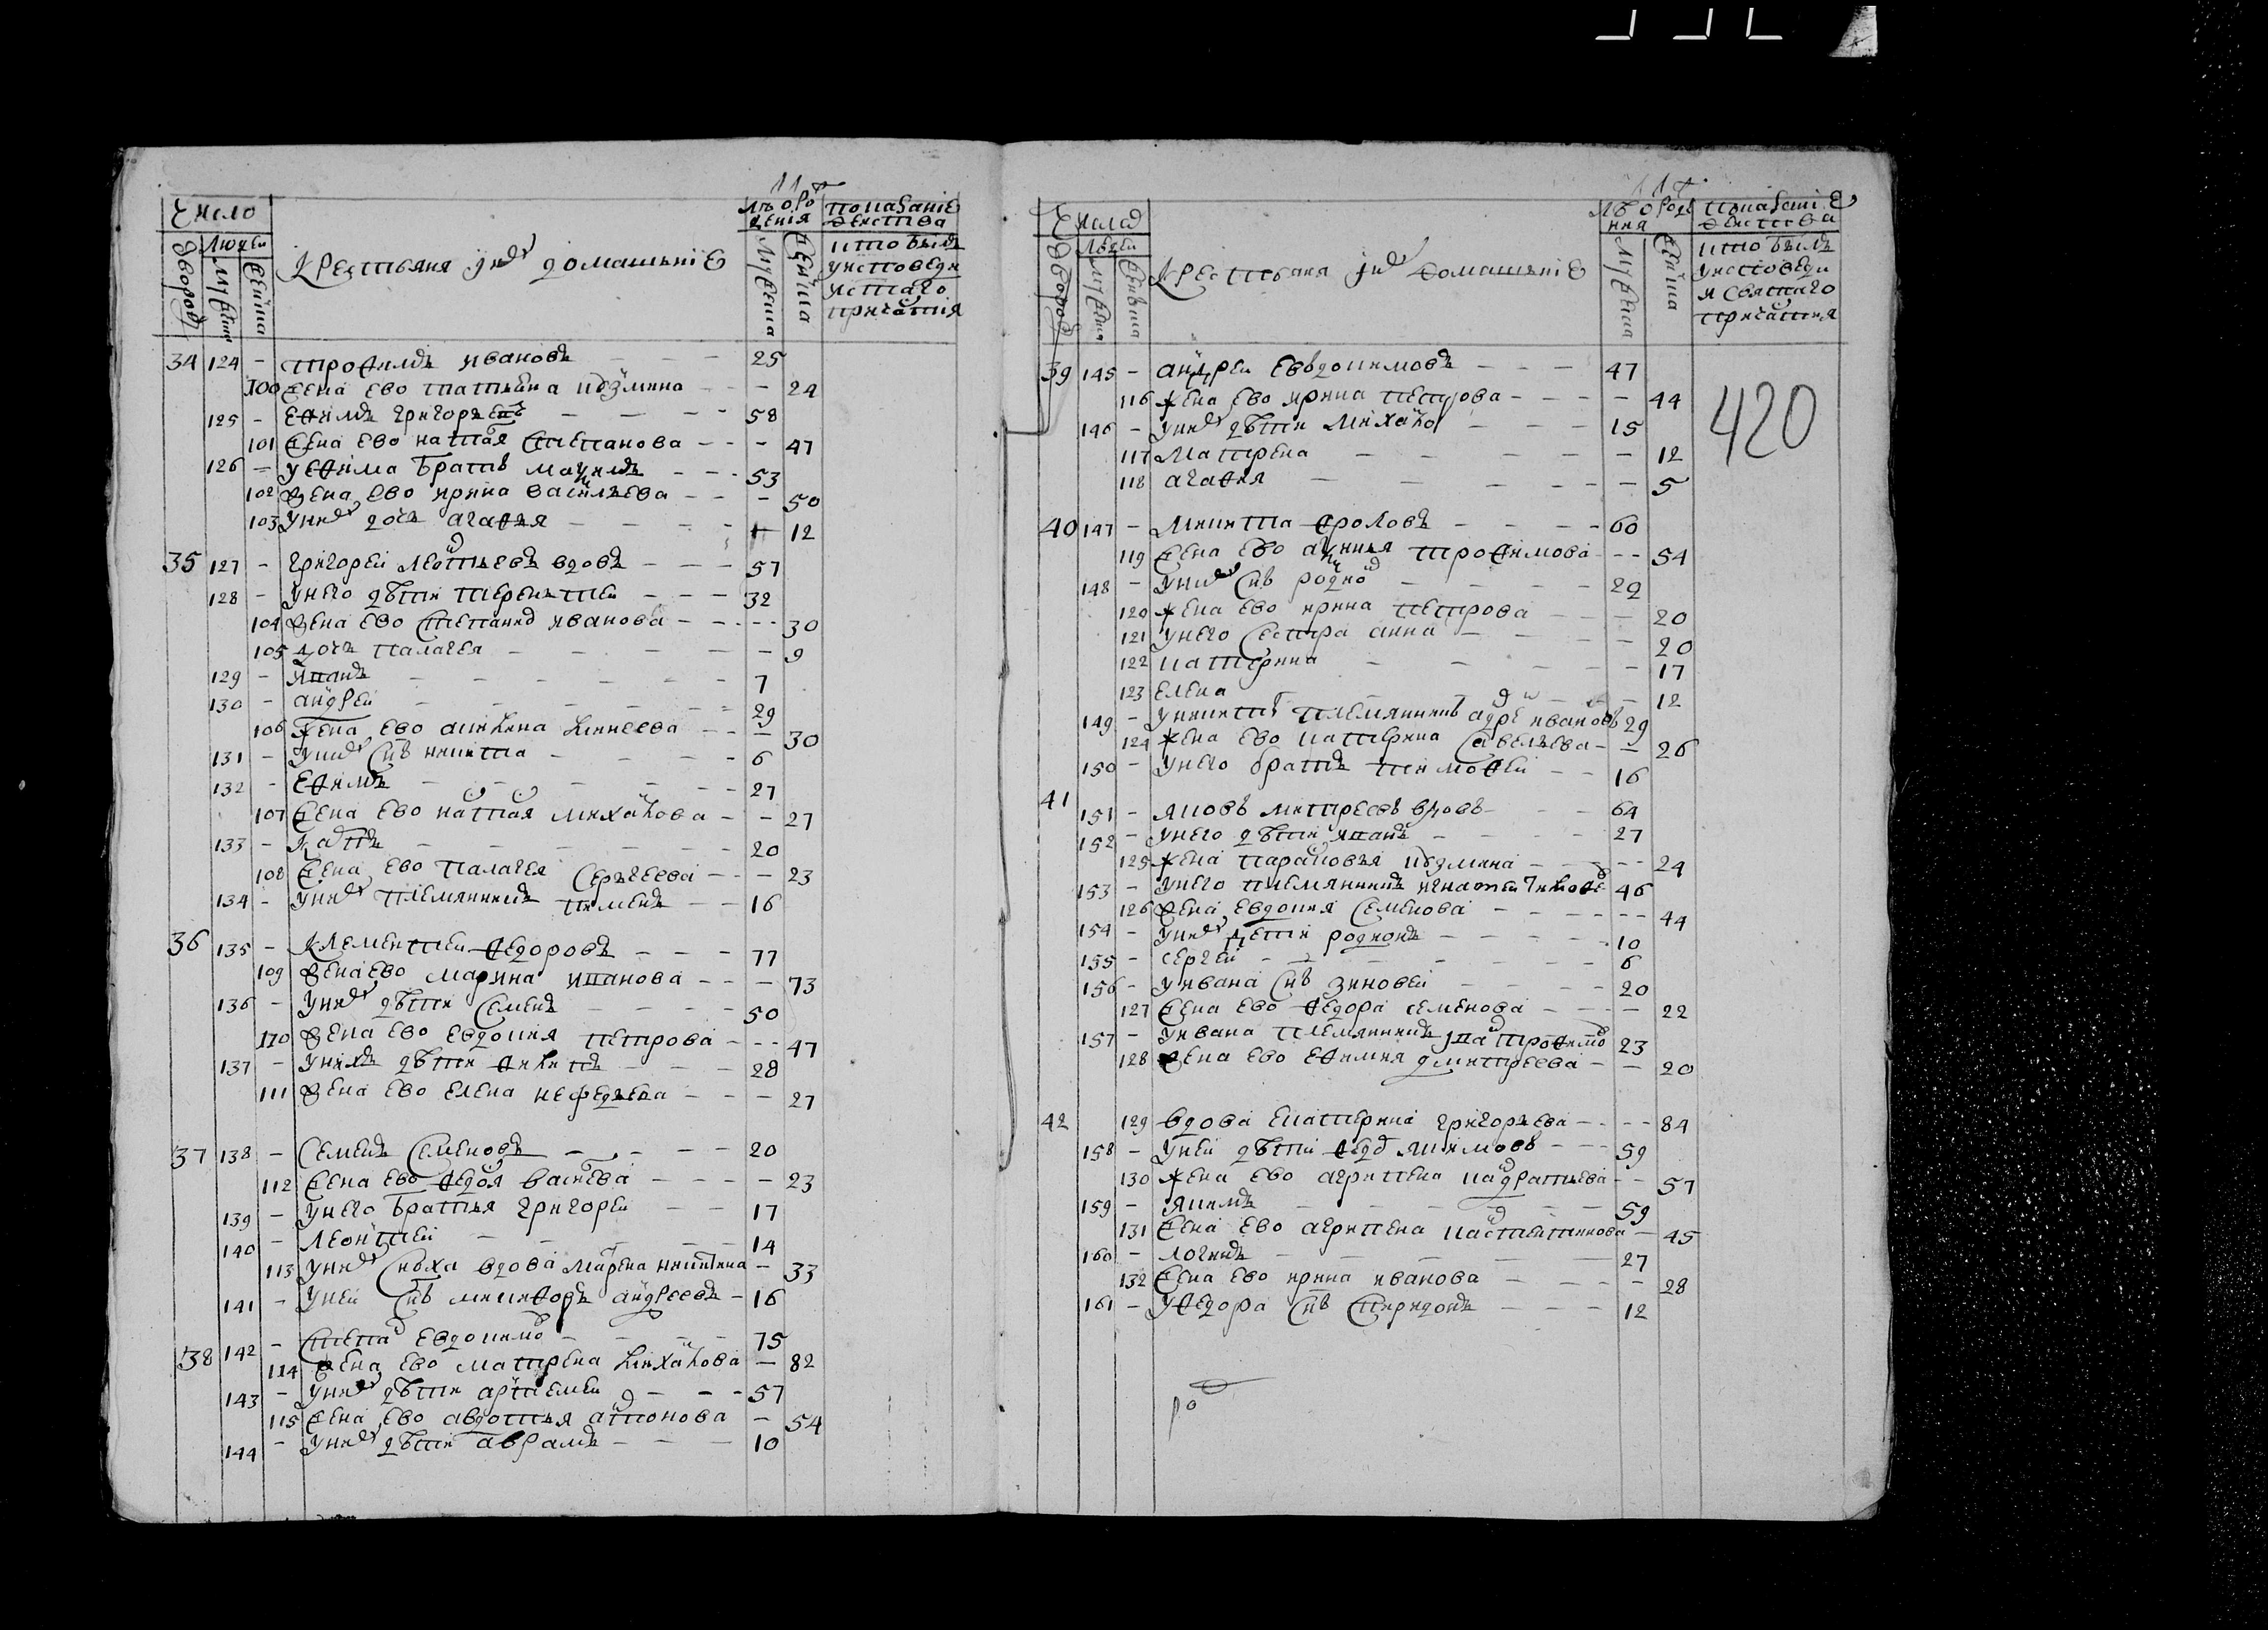 Число
Людеи
дворов
Мужеска
Женска
Крестьяня и ихъ домашние
лѣ о рож
дения
Мужеска
Женска
показание
действа
кто былъ
у исповеди
и стаго
причастия
34 124 - трофимъ ивановъ - - - 25
100 жена ево татьяна кузмина - - - 24
125 - ефимъ григорьевъ - - - - 58
101 жена ево наталя степанова - - - 47
126 - у ефима братъ макимъ - - - 53
102 жена ево ирина василева - - - 50
103 у них дочь агафя - - - - 12
35 127 - григореи леотьевъ вдовъ - - - 57
128 - у него дѣти терентеи - - - 32
104 жена ево степанид иванова - - - - 30
105 дочь палагея - - - - - 9
129 - иванъ - - - - - - 7
130 - андреи - - - - - - 29
106 жена ево акилина - - - 30
131 - у них снъ никита - - - - - 6
132 - ефимъ - - - - - - 27
107 жена ево наталя михаилова - - 27
133 - - - - - - - 20
108 жена ево палагея сергеева - - - 23
134 - у них племянникъ пименъ - - 16
36 135 - клементеи федоровъ - - - 77
109 жена ево марина иванова - - - 73
136 - у них дѣти семенъ - - - - 50
110 жена ево евдокия петрова - - - 47
137 - у нихъ дѣти филипъ - - - 28
111 жена ево елена нефедьева - - - 27
37 138 - семенъ семеновъ - - - - 20
112 жена ево федоя василева - - - - 23
139 - у него братья григореи - - 17
140 - леонтеи - - - - - 14
113 у них сноха вдова марена никитина - 33
141 - у неи снъ никифоръ андреевъ - 16
38 142 - степан евдокимо - - - - 75
114 жена ево матрена михаилова - 82
143 - у них дѣти артемеи - - - 57
115 жена ево авдотья атонова - 54
144 - у них дѣти аврамъ - - - 10
Число
Людеи
дворов
Мужеска
Женска
Крестьяня и ихъ домашние
лѣ о рожде
ния
Мужеска
Женска
показание
действа
кто былъ
у исповеди
и святаго
причастия
420
39 145 - андреи евдокимовъ - - - 47
116 жена ево ирина петрова - - - - 44
146 - у них дѣти михаило - - - 15
117 матрена - - - - - - 12
118 агафия - - - - - - 5
40 147 - никита фроловъ - - - - 60
119 жена ево трофимова - - 54
148 - у них снъ родио - - - - 29
120 жена ево ирина петрова - - - 20
121 у него сестра анна - - - - - 20
122 катерина - - - - - 17
123 елена - - - - - 12
149 - у никиты племянникъ адре ивановъ 29
124 жена ево катерина савельева - - 26
150 - у него братъ тимофеи - - 16
41 151 - яковъ митреевъ вдовъ - - - 64
152 - у него дѣти иванъ - - - - 27
125 жена параковья кузмина - - - - 24
153 - у него племянникъ игнатеи 46
126 жена евдокия семенова - - - - - 44
154 - у них дети родионъ - - - - 10
155 - сергеи - - - - - - 6
156 - у ивана снъ зиновеи - - - - 20
127 жена ево федора семенова - - - - 22
157 - у ивана племянникъ трофимо 23
128 жена ево ефимия дмитреева - - 20
42 129 вдова екатерина григорьева - - - - 84
158 - у неи дѣти федо якимовъ - - - 59
130 жена ево агрипена кадратьева - - 57
159 - якимъ - - - - - - 59
131 жена ево агрипена костентинова - 45
160 - логинъ - - - - - 27
132 жена ево ирина иванова - - - - 28
161 - у федора снъ спиридонъ - - - 12
ро